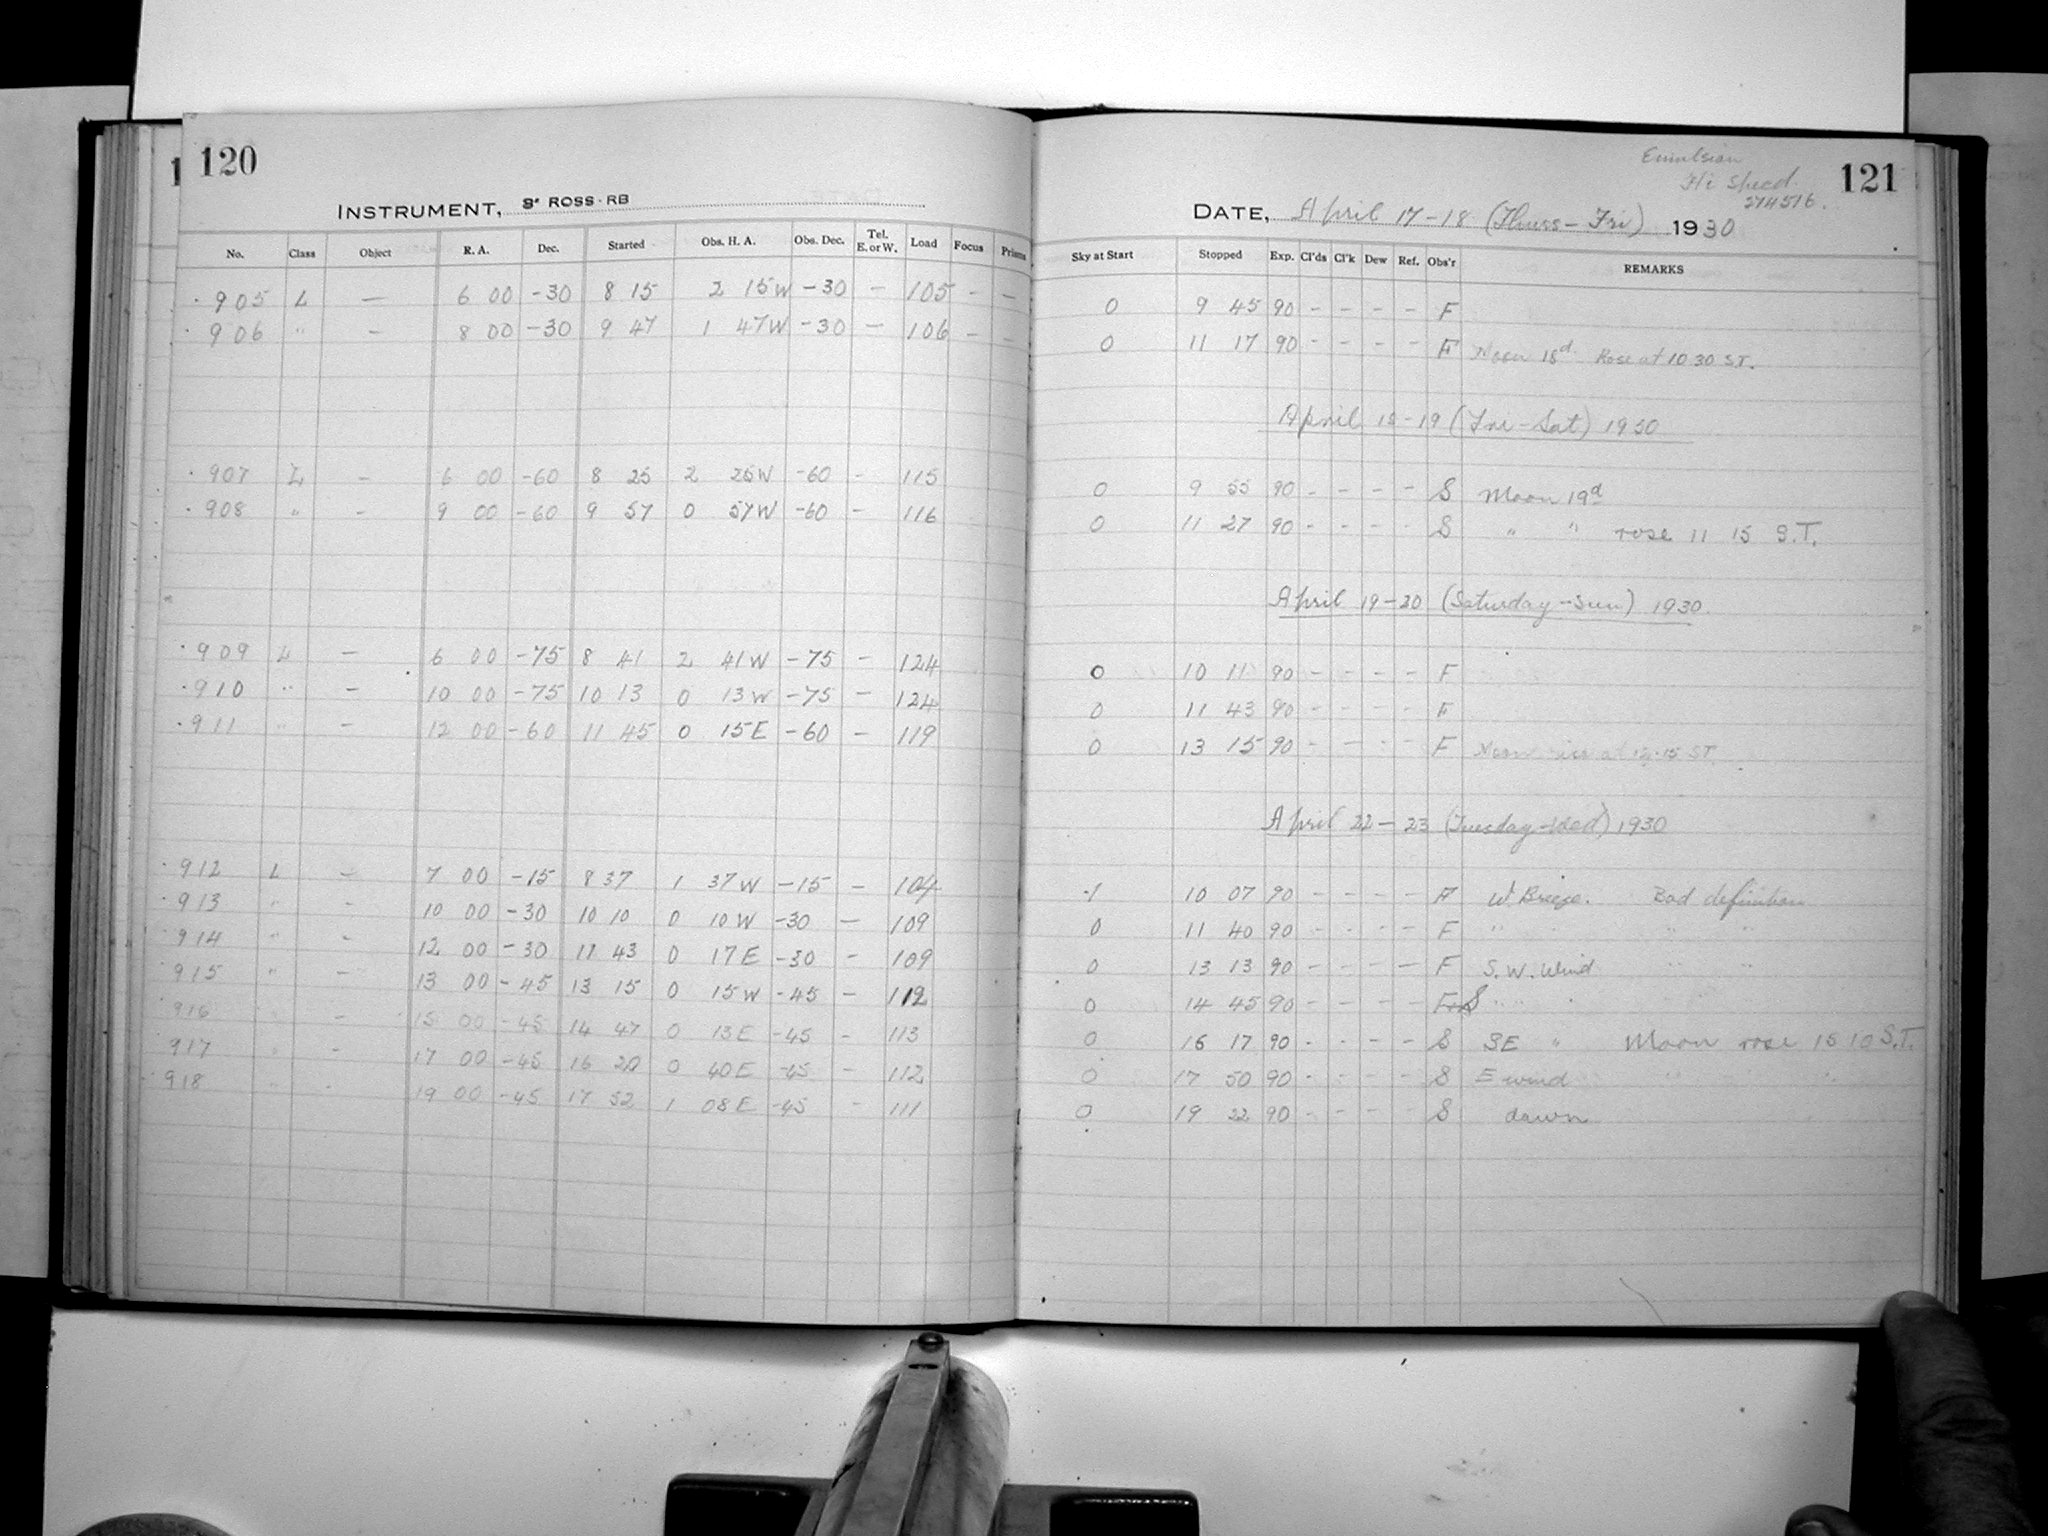 120
INSTRUMENT, 3" ROSS-RB
No. Class Object R. A. Dec. Started Obs. H. A. Obs. Dec. Tel. E. or W. Load Focus Prisms
905 L — 6 00 -30 8 15 2 15W -30 — 105 - —
906 " — 8 00 -30 9 47 1 47W -30 — 106 — —
907 L — 6 00 -60 8 25 2 25W -60 - 115
908 " - 9 00 -60 9 57 0 57W -60 - 116
909 L — 6 00 -75 8 41 2 41W -75 — 124
910 " — 10 00 -75 10 13 0 13W -75 — 124
911 " — 12 00 -60 11 45 0 15E -60 — 119
912 L — 7 00 -15 8 37 1 37W -15 — 104
913 " - 10 00 -30 10 10 0 10W -30 — 109
914 " - 12 00 -30 11 43 0 17E -30 - 109
915 " — 13 00 -45 13 15 0 15W -45 — 112
916 " — 15 00 -45 14 47 0 13E -45 - 113
917 " - 17 00 -45 16 20 0 40E -45 - 112
918 " - 19 00 -45 17 52 1 08E -45 - 111
Emulsion
Hi Speed
274516.
121
DATE, April 17-18 (Thurs-Fri) 1930
Sky at Start Stopped Exp. Cl'ds Cl'k Dew Ref. Obs'r REMARKS
0 9 45 90 - - - - F
0 11 17 90 - - - - F Moon 18d Rose at 10 30 ST.
April 18-19 (Fri-Sat) 1930
0 9 55 90 - - - - S Moon 19d
0 11 27 90 - - - - S " " rose 11 15 S.T.
April 19-20 (Saturday-Sun) 1930.
0 10 11 90 - - - - F
0 11 43 90 - - - - F
0 13 15 90 - - - - F Moon at ST.
April 22-23 (Tuesday-Wed) 1930
-1 10 07 90 - - - - F W. Breeze. Bad definition
0 11 40 90 - - - - F " " " "
0 13 13 90 - - - - F S.W. Wind " "
0 14 45 90 - - - - S " "
0 16 17 90 - - - - S SE " Moon rose 15 10 S.T.
0 17 50 90 - - - - S E wind " "
0 19 22 90 - - - - S dawn